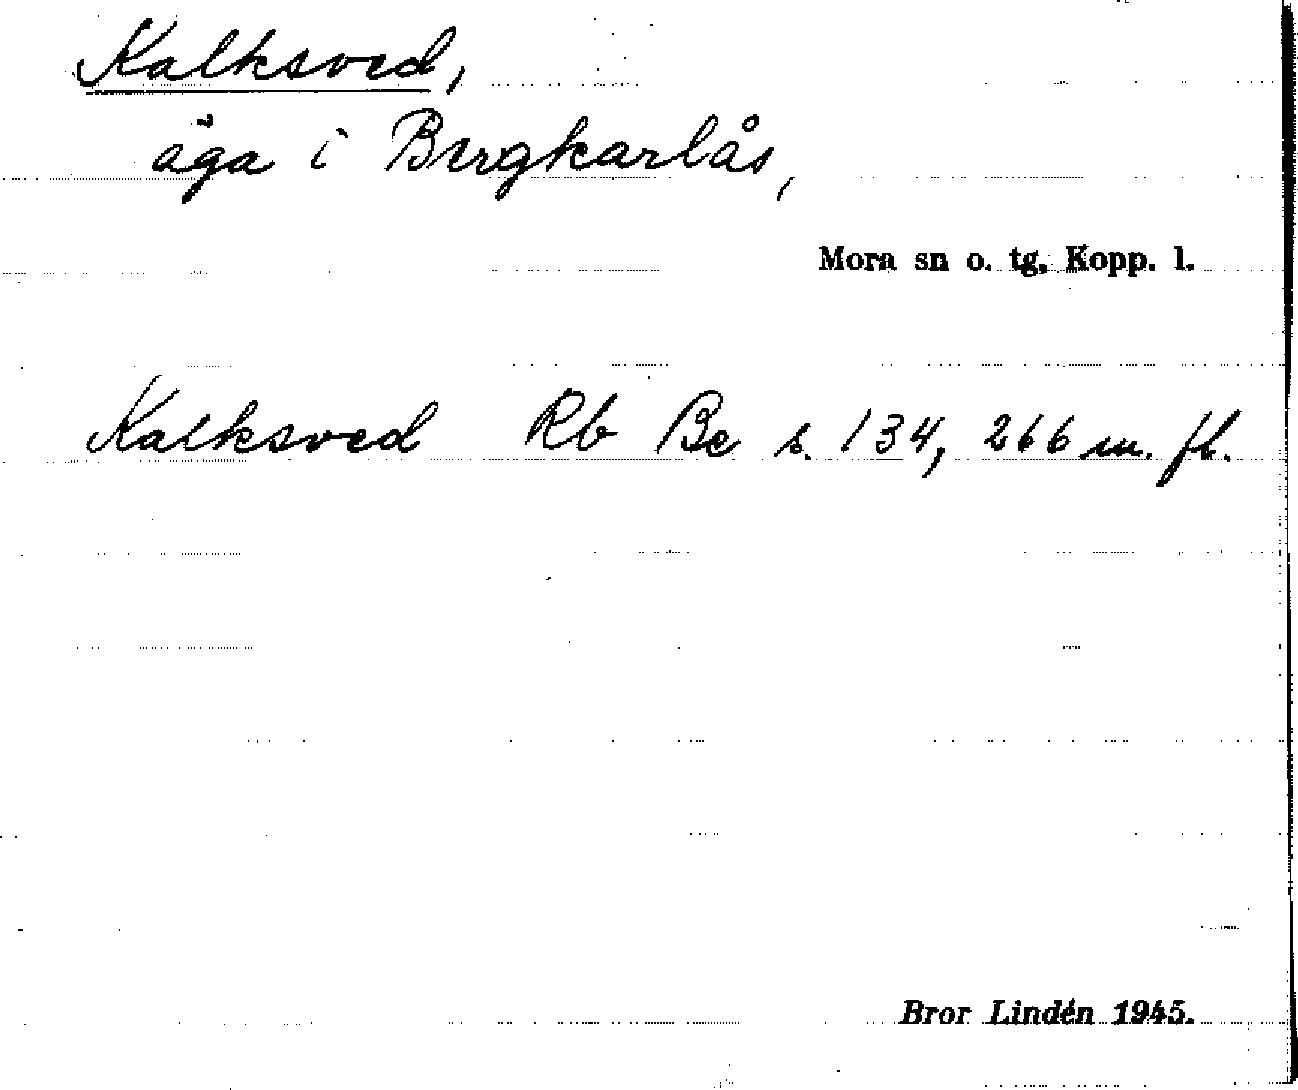 Kalksved,
äga i Bergkarlås,
Mora sn o. tg. Kopp. l.
Kalksved Rb Be s. 134, 266 m. fl.
Bror Lindén 1945.